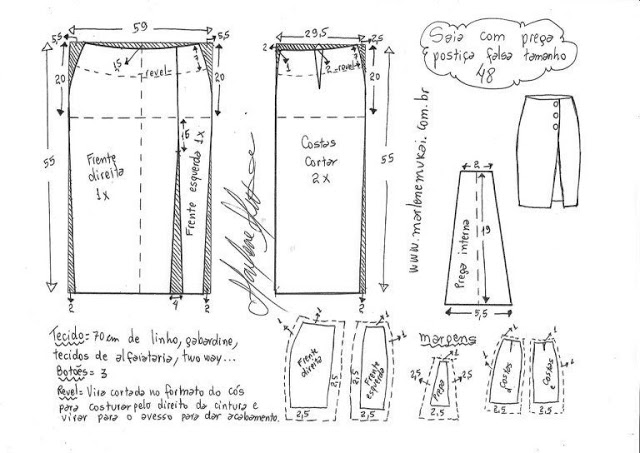 59
29,5
5,5
5,5
2
2,5
Saia com prega
postiça falsa tamanho
48
20
1,5
revel
3
20
20
1
2
revel
3
20
55
55
55
15
Frente
direita
1x
Frente esquerda 1x
Costas
Cortar
2x
www.marlenemukai.com.br
2
Prega interna
19
5,5
2
4
2
2
Marlene Mukai
Tecido= 70 cm de linho, gabardine,
tecidos de alfaiataria, two way...
Botões= 3
Revel= Vira cortada no formato do cós
para costurar pelo direito da cintura e
virar para o avesso para dar acabamento.
margens
1
1
1
1
Frente
direita
2,5
2,5
Frente
esquerda
2,5
2,5
1
Prega
2,5
2,5
2,5
1
Costas
d
2,5
1
Costas
e
2,5